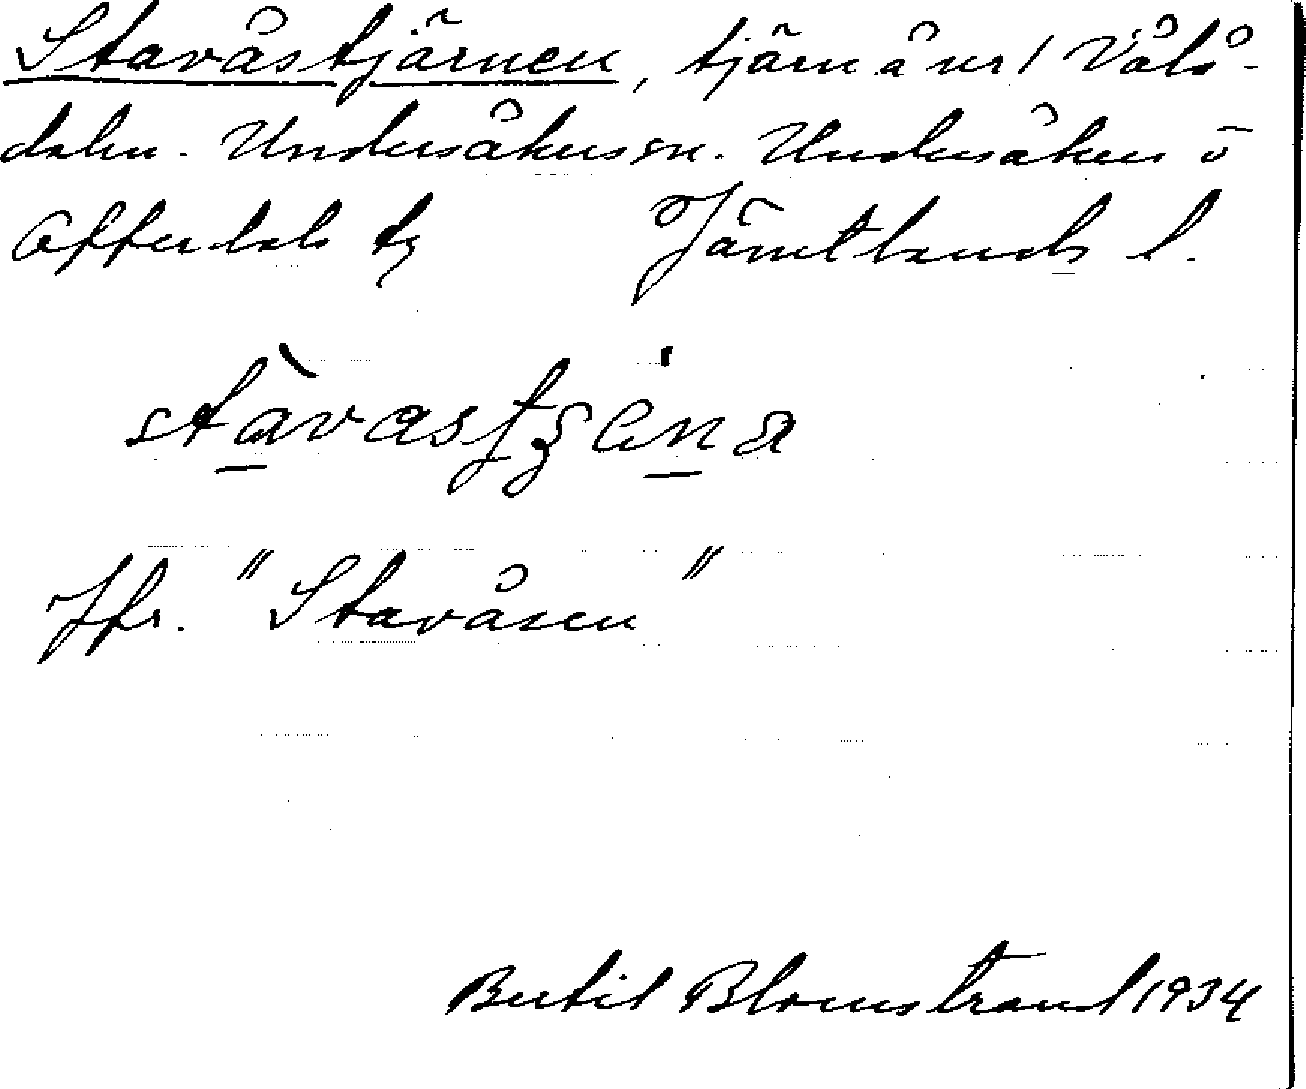 Stavåstjärnen, tjärn å nr 1 Vålå-
dalen. Undersåkers sn. Undersåkers o
Offerdals tg Jämtlands l.
Jfr. "Stavåsen"
Bertil Blomstrand 1934